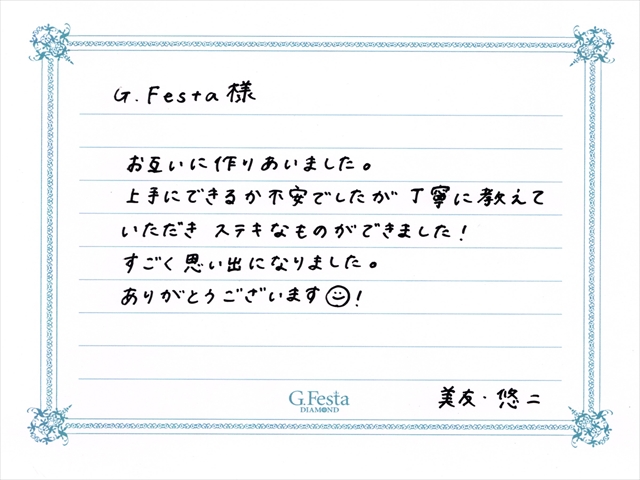 G.Festa様
お互いに作りあいました。
上手にできるか不安でしたが 丁寧に教えて
いただき ステキなものができました!
すごく思い出になりました。
ありがとうございます!
美友・悠二
G.Festa
DIAMOND